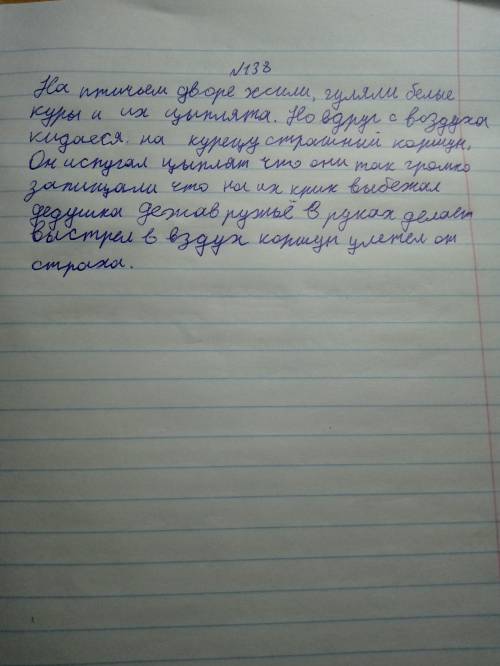 №138
На птичьем дворе жили, гуляли белые
куры и их цыплята. Но вдруг с воздуха
кидаеся на курецу страшний коршун.
Он испугал цыплят что они так громко
запищали что на их крик выбежал
дедушка дежав ружьё в руках делает
выстрел в вздух коршун улетел от
страха.